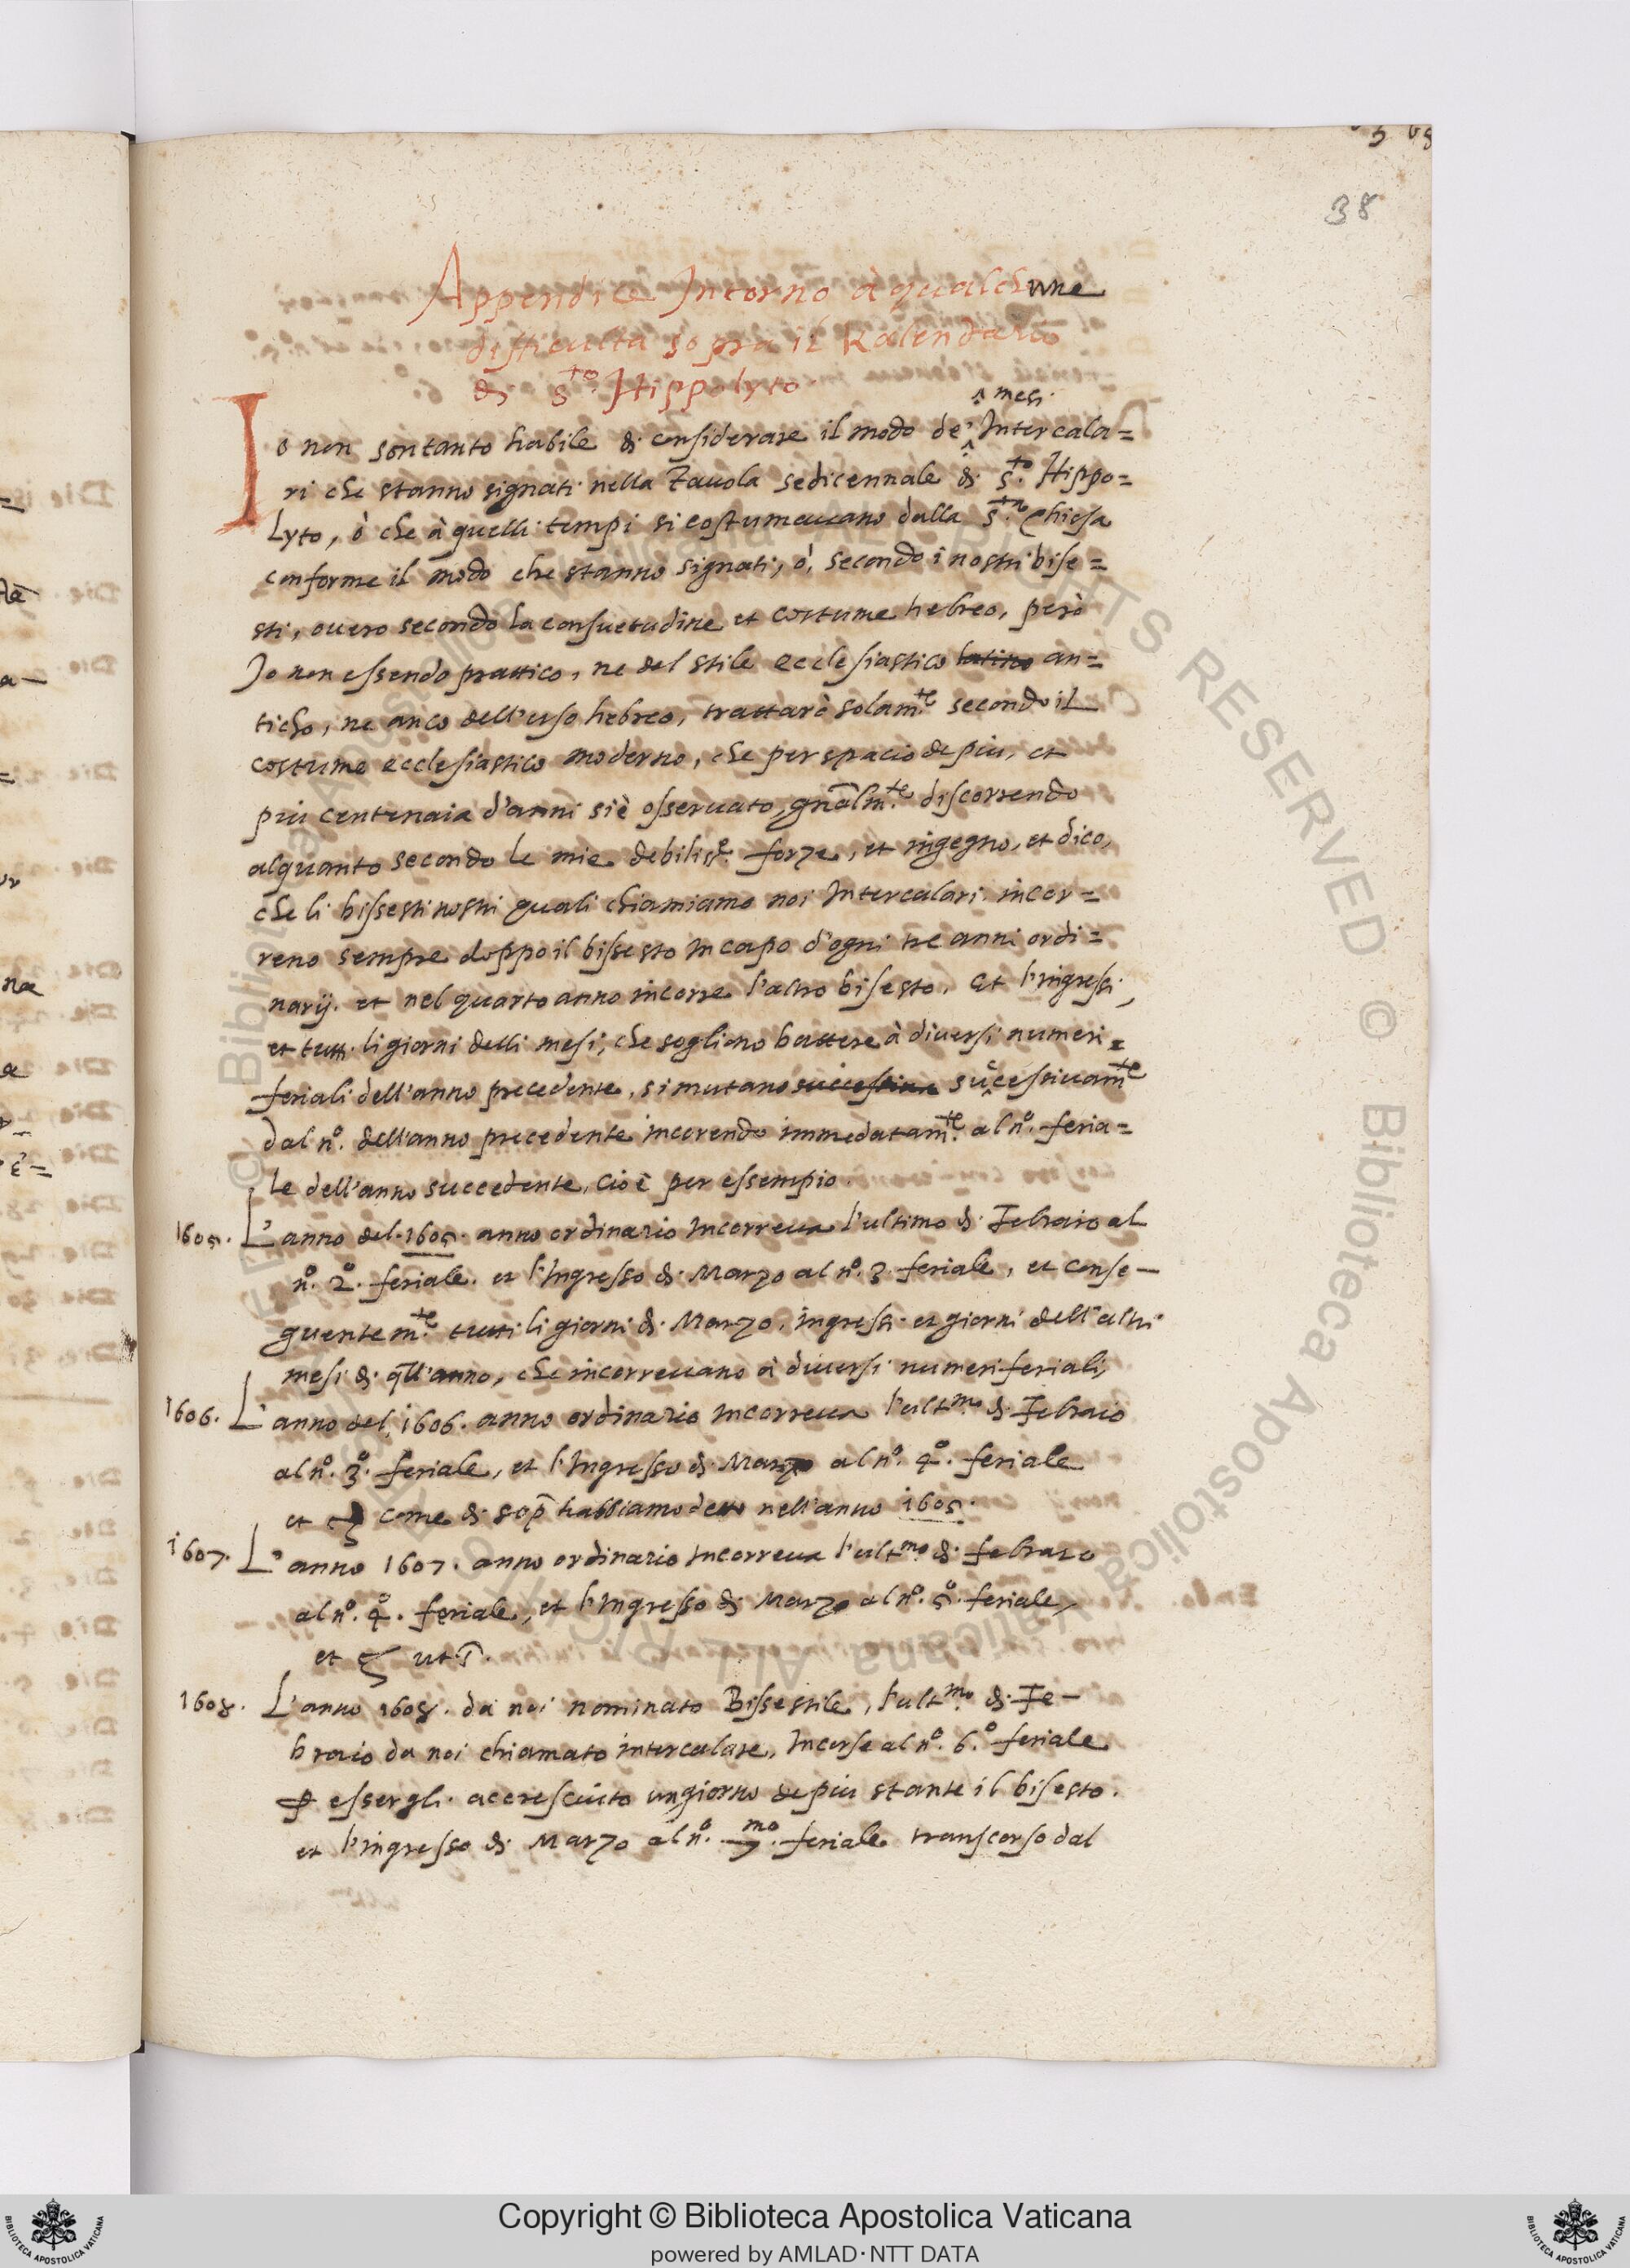 38
Appendice Intorno à qualchune
difficulta sopra il Kalendario
di S.to Hippolyto
mesi
Io non son tanto habile di considerare il modo de' Intercala=
ri che stanno signati nella Tauola sedicennale di S.to Hippo=
lyto, ò che à quelli tempi si costumauano dalla S.ta Chiesa
conforme il modo che stanno signati, ò, secondo i nostri bise=
sti, ouero secondo la consuetudine et costume hebreo, però
Io non essendo prattico, ne del stile ecclesiastico latino an=
ticho, ne anco dell'uso hebreo, trattarò solam.te secondo il
costume ecclesiastico moderno, che per spacio de piu, et
piu centenaia d'anni si è osseruato, gnalm.te discorrendo
alquanto secondo le mie debiliss.e forze, et ingegno, et dico,
che li bissesti nostri quali chiamiamo noi Intercalari incor=
reno sempre doppo il bissesto in capo d'ogni tre anni ordi=
narij. et nel quarto anno incorre l'altro bisesto. Et l'ingressi,
et tutti li giorni delli mesi, che sogliono battere à diuersi numeri=
feriali dell'anno precedente, si mutano successiua sucessiuam.te
dal n.o dell'anno precedente incorendo immedatam.te al n.o feria=
le dell'anno succedente, cio è per essempio.
1605. L'anno del 1605. anno ordinario Incorreua l'ultimo di Febraio al
n.o 2.o feriale. et l'Ingresso di Marzo al n.o 3. feriale, et conse-
guentem.te tutti li giorni di Marzo, ingressi et giorni dell'altri
mesi di qll'anno, che incorreuano à diuersi numeri feriali,
1606. L'anno del 1606. anno ordinario Incorreua l'ult.mo di Febraio
al n.o 3.o feriale, et l'Ingresso di Marzo al n.o 4.o feriale
et come di sop habbiamo detto nell'anno 1605.
1607. L'anno 1607. anno ordinario Incorreua l'ult.mo di febraro
al n.o 4.o feriale, et l'Ingresso di Marzo al n.o 5.o feriale,
et ut
1608. L'anno 1608. da noi nominato Bissestile, l'ult.mo di Fe-
braio da noi chiamato intercalare, Incorse al n.o 6.o feriale
p essergli accresciuto un giorno de piu stante il bisesto.
et l'ingresso di Marzo al n.o 7.mo feriale transcorso dal
Copyright © Biblioteca Apostolica Vaticana
powered by AMLAD·NTT DATA